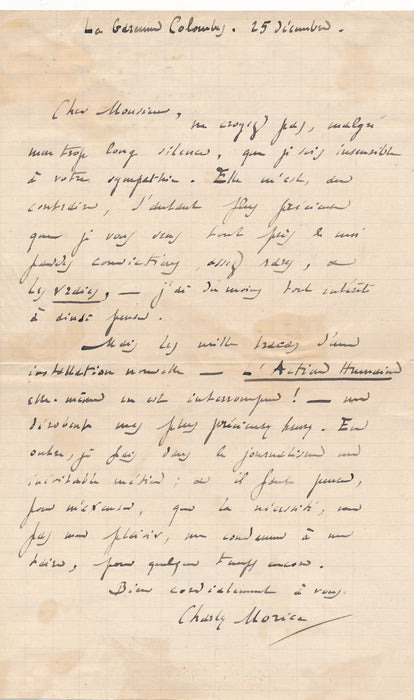 La Garenne Colombes. 25 décembre.
Cher Monsieur,
ne croyez pas, malgré
mon trop long silence, que je sois insensible
à votre sympathie. Elle m'est, au
contraire, d'autant plus précieuse
que je vous sens tout près de moi
par des convictions, assez rares, et
les vraies, — j'ai du moins tout intérêt
à ainsi penser.
Mais les mille tracas d'une
installation nouvelle — L'Action Humaine
elle-même en est interrompue ! — me
dérobent mes plus précieuses heures. En
outre, je fais dans le journalisme un
inévitable métier ; et il faut penser,
pour m'excuser, que la nécessité, non
pas mon plaisir, me condamne à me
taire, pour quelque temps encore.
Bien cordialement à vous.
Charles Morice